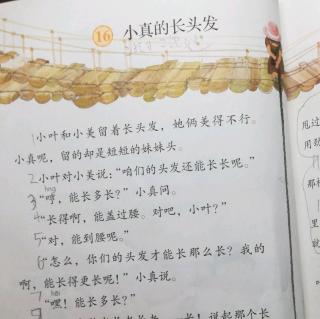 16 小真的长头发
1 小叶和小美留着长头发，她俩美得不行。
小真呢，留的却是短短的妹妹头。
2 小叶对小美说：“咱们的头发还能长长呢。”
3 “哼，能长多长？”小真问。
4 “长得啊，能盖过腰。对吧，小叶？”
5 “对，能到腰呢。”
6 “怎么，你们的头发才能长那么长？我的
啊，能长得更长呢！”小真说。
7 “嘿！能长多长？”
长！说起那个长